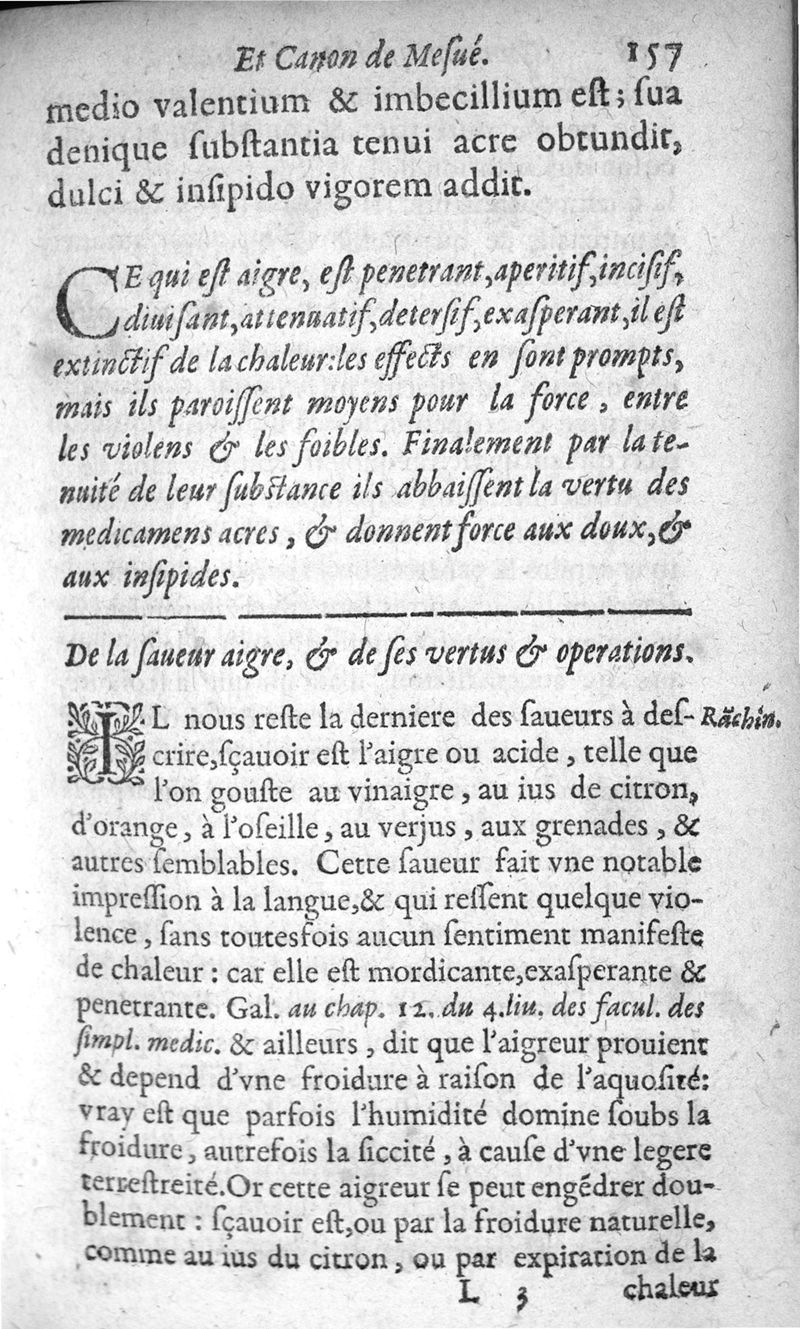 Et Canon de Meſué. 157
medio valentium & imbecillium eſt; ſua
denique ſubſtantia tenui acre obtundit,
dulci & inſipido vigorem addit.
CE qui eſt aigre, eſt penetrant, aperitif, inciſif,
diuiſant, attenuatif, deterſif, exaſperant, il eſt
extinctif de la chaleur: les effects en ſont prompts,
mais ils paroiſſent moyens pour la force, entre
les violens & les foibles. Finalement par la te-
nuité de leur ſubſtance ils abbaiſſent la vertu des
medicamens acres, & donnent force aux doux, &
aux inſipides.
De la ſaueur aigre, & de ſes vertus & operations.
IL nous reſte la derniere des ſaueurs à deſ- Rãchin.
crire, ſçauoir eſt l'aigre ou acide, telle que
l'on gouſte au vinaigre, au ius de citron,
d'orange, à l'oſeille, au verjus, aux grenades, &
autres ſemblables. Cette ſaueur fait vne notable
impreſſion à la langue, & qui reſſent quelque vio-
lence, ſans toutesfois aucun ſentiment manifeſte
de chaleur: car elle eſt mordicante, exaſperante &
penetrante. Gal. au chap. 12. du 4. liu. des facul. des
ſimpl. medic. & ailleurs, dit que l'aigreur prouient
& depend d'vne froidure à raiſon de l'aquoſité:
vray eſt que parfois l'humidité domine ſoubs la
froidure, autrefois la ſiccité, à cauſe d'vne legere
terreſtreité. Or cette aigreur ſe peut engẽdrer dou-
blement: ſçauoir eſt, ou par la froidure naturelle,
comme au ius du citron, ou par expiration de la
L 3 chaleur